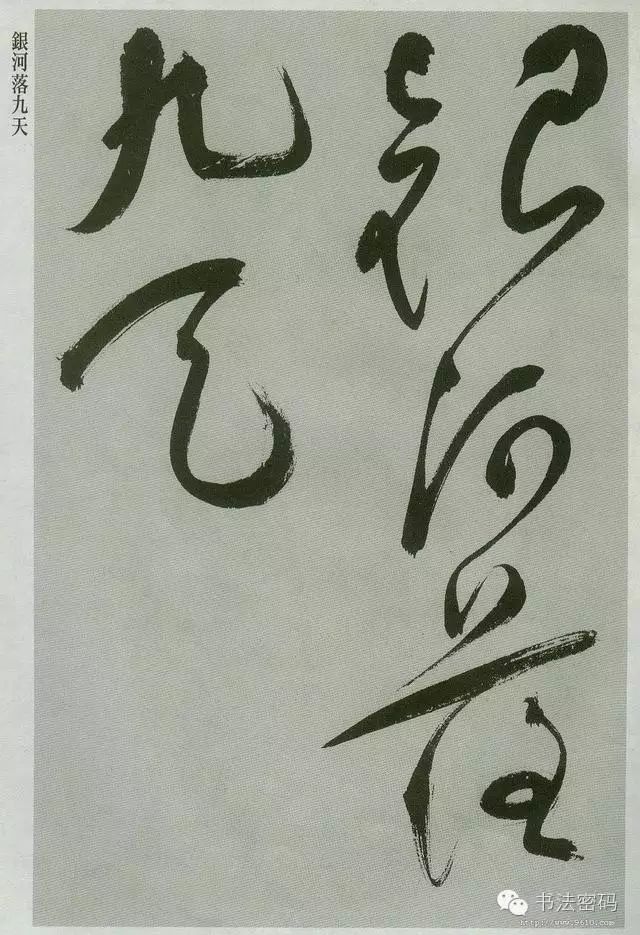 銀河落
九天
銀河落九天
书法密码
http://www.9610.com